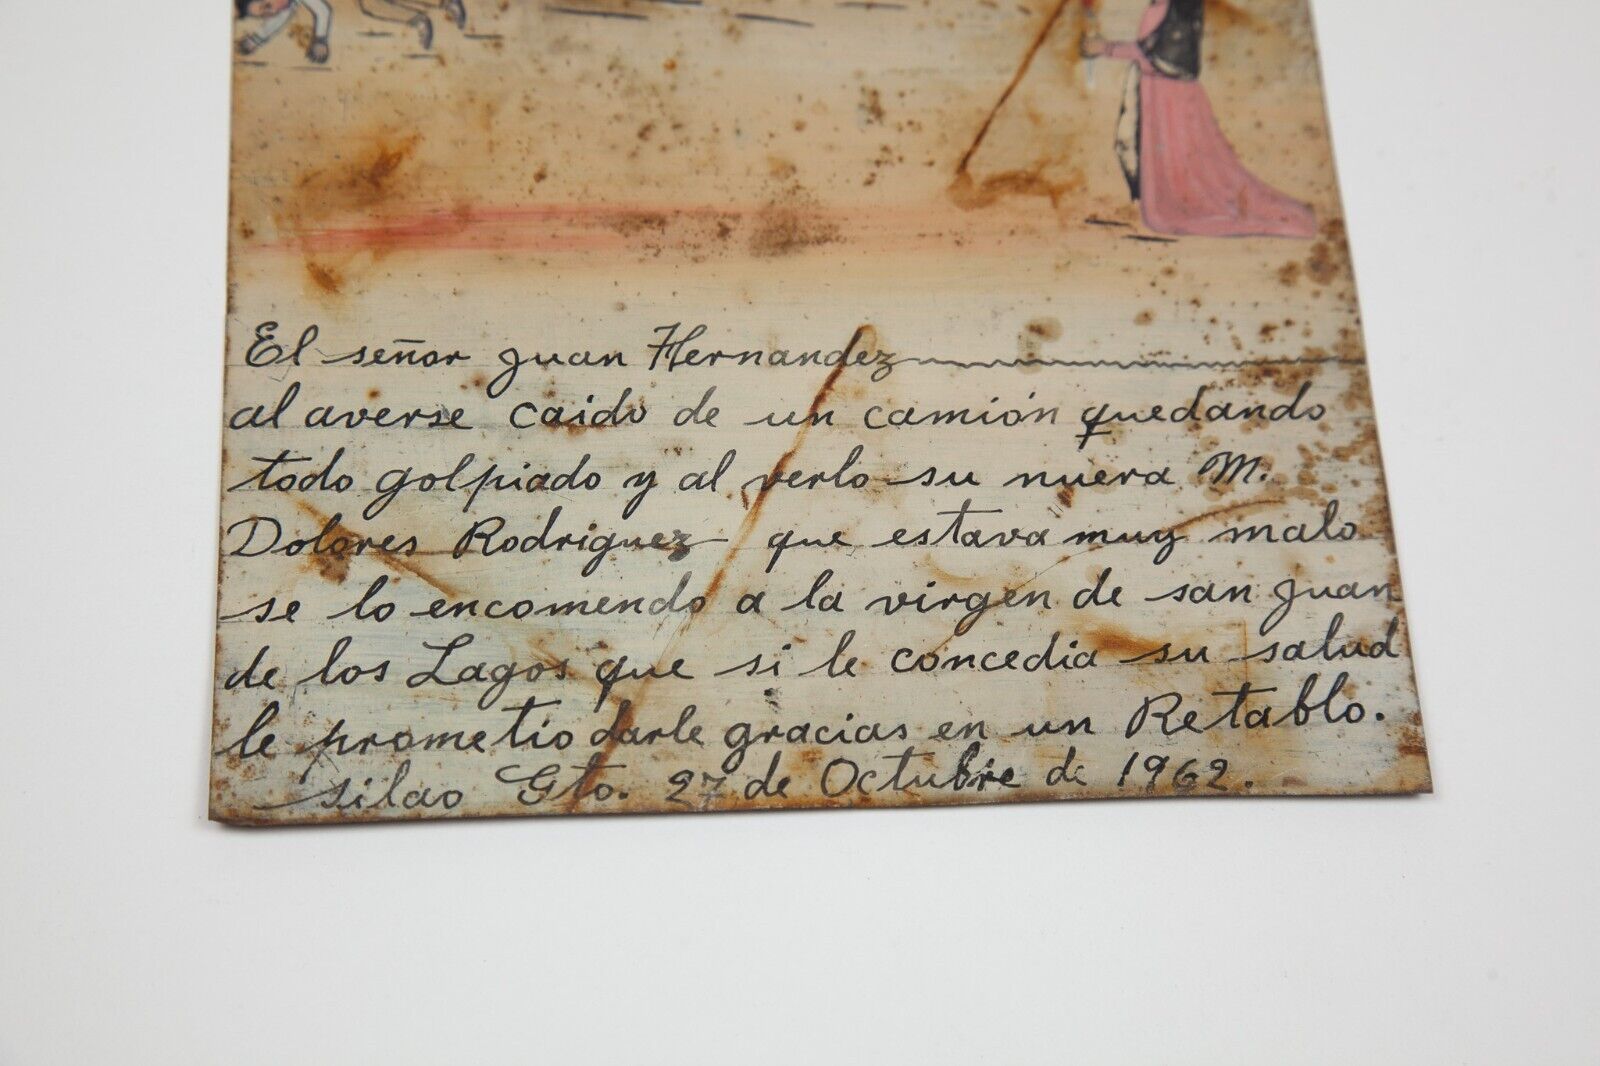 El señor Juan Hernandez
al averse caido de un camión quedando
todo golpiado y al verlo su nuera M.
Dolores Rodriguez que estava muy malo
se lo encomendo a la virgen de san Juan
de los Lagos que si le concedia su salud
le prometio darle gracias en un Retablo.
silao Gto. 27 de Octubre de 1962.